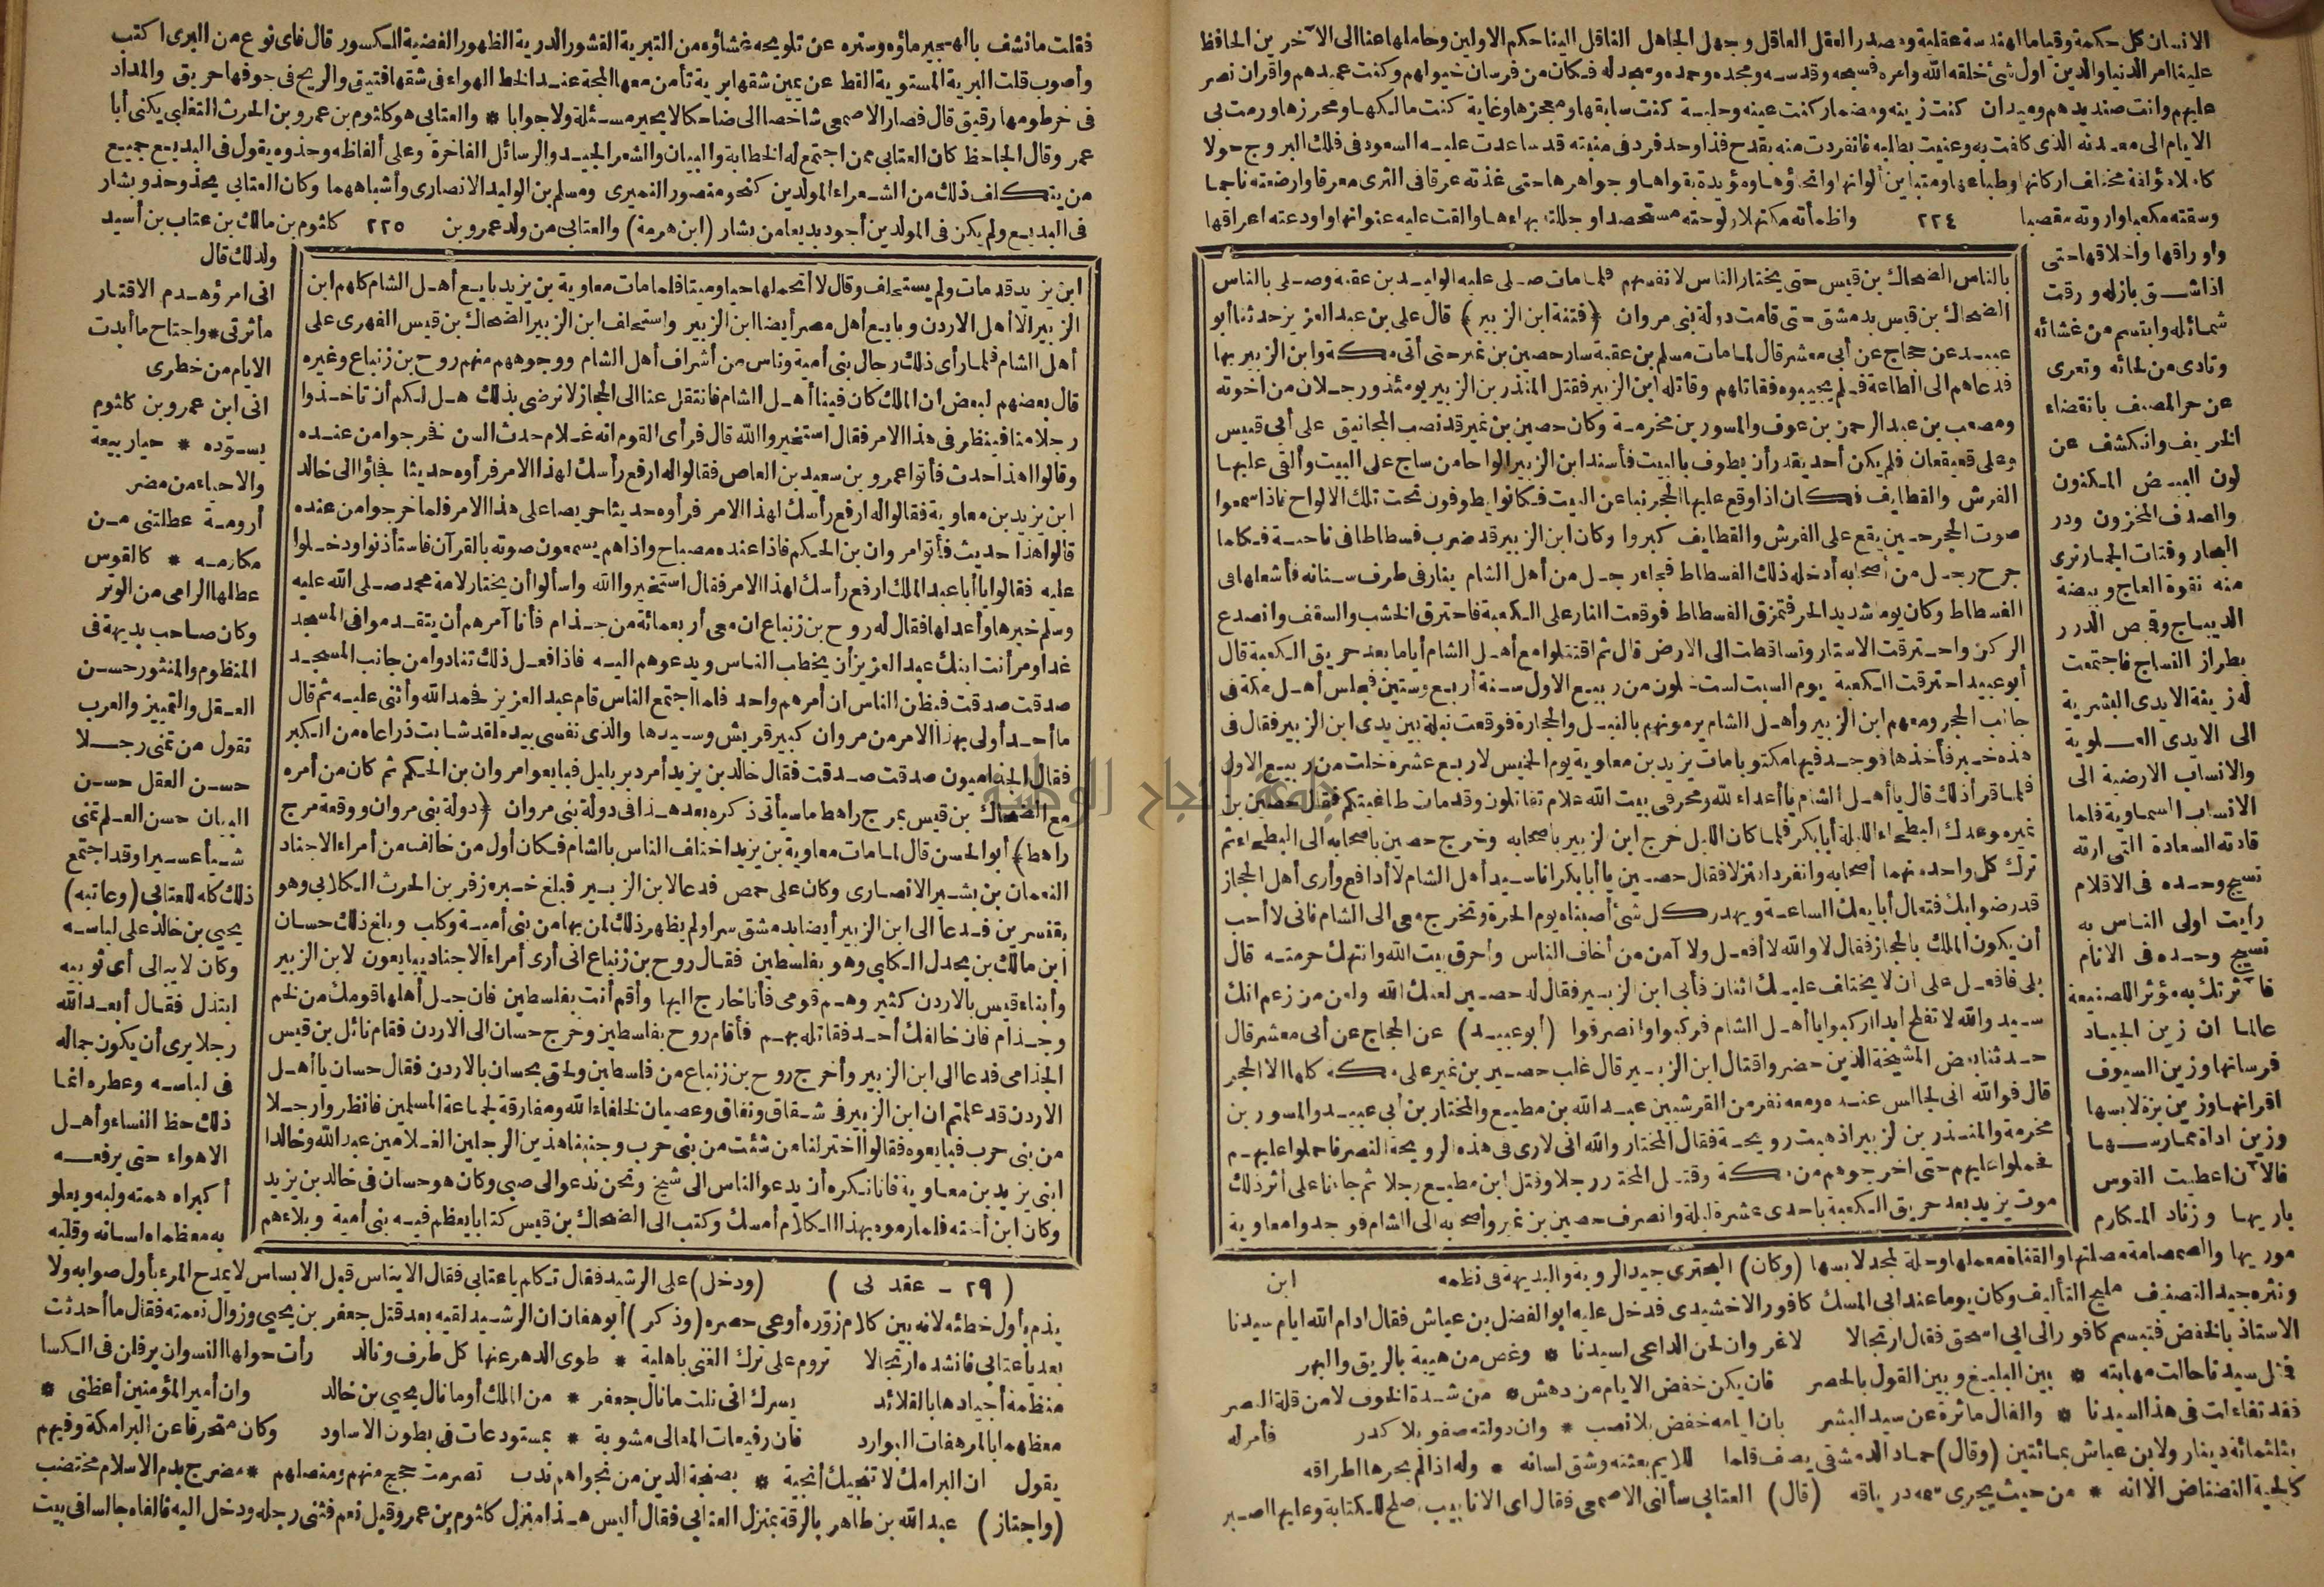 الانسان كل حكمة وقياما الهندسة عقلية ومصدر العقل العاقل وجهل الجاهل الناقل الينا حكم الاولين وحاملها عنا الى الآخرين الحافظ
علينا امر الدنيا والدين اول شئ خلقه الله وامره فسبحه وقدسه ومجده وحمده
عليهم وانت صنديدهم وميدان كنت زينه ومضمار كنت عينه وحلبة كنت سابقها ومعجزها وغاية كنت مالكها ومحرزها ورمت بى
الايام الى معدنه الذى كلفت به وعنيت بطلبه فانفردت منه بقدح فذ اوحد فرد فى منبته قد ساعدت عليه السعود فى فلك البروج حولا
وسقته مكعبا واروته مقصبا ٢٢٤ واظمأته مكتهلا ولوحته مستحصدا وجللته بهاءها والقت عليه عنوانها واودعته اعراقها
واوراقها واخلاقها حتى
اذا شق بازله ورقت
شمائله وابتسم من غشائه
وتادى من لحائه وتعرى
عن حر المصيف بانقضاء
الخريف وانكشف عن
لون البيض المكنون
والصدف المخزون ودر
البحار وفتات الجمار ترى
منه نقوة العاج وبيضة
الديباج وقص الدرر
بطراز النساج فاجتمعت
له زينة الايدى البشرية
الى الايدى العلوية
والانساب الارضية الى
الانساب السماوية فلما
قادته السعادة التى ارته
نسيج وحده فى الاقلام
رأيت اولى الناس به
نسيج وحده فى الانام
فآثرتك به مؤثر الصنيعة
عالما ان زين الجياد
فرسانها وزين السيوف
اقرانها وزين بزة لابسها
وزين اداة ممارسها
فالآن اعطيت القوس
باريها وزناد المكارم
بالناس الضحاك بن قيس حتى يختار الناس لانفسهم فلما مات صلى عليه الوليد بن عقبة وصلى بالناس
الضحاك بن قيس بدمشق حتى قامت دولة بنى مروان (فتنة ابن الزبير) قال على بن عبد العزيز حدثنا أبو
عبيد عن حجاج عن أبى معشر قال لما مات مسلم بن عقبة سار حصين بن نمير حتى أتى مكة وابن الزبير بها
فدعاهم الى الطاعة فلم يجيبوه فقاتلهم وقاتله ابن الزبير فقتل المنذر بن الزبير يومئذ ورجلان من اخوته
ومصعب بن عبد الرحمن بن عوف والمسور بن مخرمة وكان حصين بن نمير قد نصب المجانيق على أبى قبيس
وعلى قعيقعان فلم يكن أحد يقدر أن يطوف بالبيت فأسند ابن الزبير ألواحا من ساج على البيت وألقى عليها
الفرش والقطايف فكان اذا وقع عليها الحجر نبا عن البيت فكانوا يطوفون تحت تلك الالواح فاذا سمعوا
صوت الحجر حين يقع على الفرش والقطايف كبروا وكان ابن الزبير قد ضرب فسطاطا فى ناحية فكلما
جرح رجل من أصحابه أدخله ذلك الفسطاط فجاء رجل من أهل الشام بنار فى طرف سنانه فأشعلها فى
الفسطاط وكان يوما شديد الحر فتمزق الفسطاط فوقعت النار على الكعبة فاحترق الخشب والسقف وانصدع
الركن واحترقت الاستار وتساقطت الى الارض قال ثم اقتتلوا مع أهل الشام أياما بعد حريق الكعبة قال
أبو عبيد احترقت الكعبة يوم السبت لست خلون من ربيع الاول سنة أربع وستين فجلس أهل مكة فى
جانب الحجر ومعهم ابن الزبير وأهل الشام يرمونهم بالنبل والحجارة فوقعت نبلة بين يدى ابن الزبير فقال فى
هذه خبر فأخذها فوجد فيها مكتوبا مات يزيد بن معاوية يوم الخميس لاربع عشرة خلت من ربيع الاول
فلما قرأ ذلك قال يا أهل الشام يا أعداء الله ومحرقى بيت الله علام تقاتلون وقد مات طاغيتكم فقال حصين بن
نمير موعدك البطحاء الليلة أبا بكر فلما كان الليل خرج ابن الزبير باصحابه وخرج حصين باصحابه الى البطحاء ثم
ترك كل واحد منهما أصحابه وانفردا فنزلا فقال حصين يا أبا بكر انا سيد أهل الشام لا أدافع وأرى أهل الحجاز
قد رضوا بك فتعال أبايعك الساعة ويهدر كل شئ أصبناه يوم الحرة وتخرج معى الى الشام فانى لا أحب
أن يكون الملك بالحجاز فقال لا والله لا أفعل ولا آمن من أخاف الناس وأحرق بيت الله وانتهك حرمته قال
بلى فافعل على ان لا يختلف عليك اثنان فأبى ابن الزبير فقال له حصين لعنك الله ولعن من زعم انك
سيد والله لا تفلح أبدا اركبوا يا أهل الشام فركبوا وانصرفوا (أبو عبيد) عن الحجاج عن أبى معشر قال
حدثنا بعض المشيخة الذين حضروا قتال ابن الزبير قال غلب حصين بن نمير على مكة كلها الا الحجر
قال فوالله انى لجالس عنده ومعه نفر من القرشيين عبد الله بن مطيع والمختار بن أبى عبيد والمسور بن
مخرمة والمنذر بن الزبير اذ هبت رويحة فقال المختار والله انى لارى فى هذه الرويحة النصر فاحملوا عليهم
فحملوا عليهم حتى اخرجوهم من مكة وقتل المختار رجلا وقتل ابن مطيع رجلا ثم جاءنا على أثر ذلك
موت يزيد بعد حريق الكعبة باحدى عشرة ليلة وانصرف حصين بن نمير وأصحابه الى الشام فوجدوا معاوية
موريها والصمصامة مصلتها والقناة معملها وحلة المجد لابسها (وكان) البحترى جيد الروية والبديهة فى نظمه ابن
ونثره جيد التصنيف مليح التأليف وكان يوما عند ابى المسك كافور الاخشيدى فدخل عليه ابو الفضل بن عياش فقال ادام الله ايام سيدنا
الاستاذ بالخفض فتبسم كافور الى ابى اسحق فقال ارتجالا لا غرو ان لحن الداعى لسيدنا * وغص من هيبة بالريق والبهر
فمثل سيدنا حالت مهابته * بين البليغ وبين القول بالحصر فان يكن خفض الايام من دهش * من شدة الخوف لا من قلة البصر
فقد تفاءلت فى هذا لسيدنا * والفال مأثرة عن سيد البشر بان ايامه خفض بلا نصب * وان دولته صفو بلا كدر فأمر له
بثلثمائة دينار ولابن عياش بمائتين (وقال) حماد الدمشقى يصف قلما للايم بعثته وشق لسانه * وله اذا لم يجرها اطراقه
كالحية النضناض الا انه * من حيث يجرى سمه درياقه (قال) العتابى سألنى الاصمعى فقال اى الانابيب اصلح للكتابة وعليها اصبر
فقلت ما نشف بالهجير ماؤه وستره عن تلويحه غشاؤه من التبرية القشور الدرية الظهور الفضية الكسور قال فاى نوع من البرى اكتب
وأصوب قلت البرية المستوية القط عن يمين شقها برية تأمن معها المجة عند الخط الهواء فى شقها فتيق والريح فى جوفها حريق والمداد
فى خرطومها رقيق قال فصار الاصمعى شاخصا الى ضاحكا لا يحير مسئلة ولا جوابا * والعتابى هو كلثوم بن عمرو بن الحرث التغلبى يكنى أبا
عمر وقال الجاحظ كان العتابى ممن اجتمع له الخطابة والبيان والشعر الجيد والرسائل الفاخرة وعلى ألفاظه وحذوه يقول فى البديع جميع
من يتكلف ذلك من الشعراء المولدين كنحو منصور النميرى ومسلم بن الوليد الانصارى وأشباههما وكان العتابى يحذو حذو بشار
فى البديع ولم يكن فى المولدين أجود بديعا من بشار (ابن هرمة) والعتابى من ولد عمرو بن ٢٢٥ كلثوم بن مالك بن عتاب بن أسيد
ولذلك قال
انى امرؤ هدم الاقتار
مأثرتى * واجتاح ما أبدت
الايام من خطرى
انى ابن عمرو بن كلثوم
يسوّده * حيا ربيعة
والاحياء من مضر
أرومة عطلتنى من
مكارمه * كالقوس
عطلها الرامى من الوتر
وكان صاحب بديهة فى
المنظوم والمنثور حسن
العقل والتمييز والعرب
تقول من تمنى رجلا
حسن العقل حسن
البيان حسن العلم تمنى
شيأ عسيرا وقد اجتمع
ذلك كله للعتابى (وعاتبه)
يحيى بن خالد على لباسه
وكان لا يبالى أى ثوبيه
ابتذل فقال أبعد الله
رجلا يرى أن يكون جماله
فى لباسه وعطره انما
ذلك حظ النساء وأهل
الاهواء حتى يرفعه
أكبراه همته ولبه ويعلو
به معظماه لسانه وقلبه
ابن يزيد قد مات ولم يستخلف وقال لا أتحملها حيا وميتا فلما مات معاوية بن يزيد بايع أهل الشام كلهم ابن
الزبير الا أهل الاردن وبايع أهل مصر أيضا ابن الزبير واستخلف ابن الزبير الضحاك بن قيس الفهرى على
أهل الشام فلما رأى ذلك رجال بنى أمية وناس من أشراف أهل الشام ووجوههم منهم روح بن زنباع وغيره
قال بعضهم لبعض ان الملك كان فينا أهل الشام فانتقل عنا الى الحجاز لا نرضى بذلك هل لكم أن تاخذوا
رجلا منا فينظر فى هذا الامر فقال استخيروا الله قال فرأى القوم انه غلام حدث السن فخرجوا من عنده
وقالوا هذا حدث فأتوا عمرو بن سعيد بن العاص فقالوا له ارفع رأسك لهذا الامر فرأوه حديثا فجاؤا الى خالد
ابن يزيد بن معاوية فقالوا له ارفع رأسك لهذا الامر فرأوه حديثا حريصا على هذا الامر فلما خرجوا من عنده
قالوا هذا حديث فأتوا مروان بن الحكم فاذا عنده مصباح واذا هم يسمعون صوته بالقرآن فاستأذنوا ودخلوا
عليه فقالوا يا أبا عبد الملك ارفع رأسك لهذا الامر فقال استخيروا الله واسألوا أن يختار لامة محمد صلى الله عليه
وسلم خيرها وأعدلها فقال له روح بن زنباع ان معى أربعمائة من جذام فأنا آمرهم أن يتقدموا فى المسجد
غدا ومر أنت ابنك عبد العزيز أن يخطب الناس ويدعوهم اليه فاذا فعل ذلك تنادوا من جانب المسجد
صدقت صدقت فيظن الناس ان أمرهم واحد فلما اجتمع الناس قام عبد العزيز فحمد الله وأثنى عليه ثم قال
ما أحد أولى بهذا الامر من مروان كبير قريش وسيدها والذى نفسى بيده لقد شابت ذراعاه من الكبر
فقال الجذاميون صدقت صدقت فقال خالد بن يزيد أمر دبر بليل فبايعوا مروان بن الحكم ثم كان من أمره
مع الضحاك بن قيس بمرج راهط ما سيأتى ذكره بعد هذا فى دولة بنى مروان (دولة بنى مروان ووقعة مرج
راهط) أبو الحسن قال لما مات معاوية بن يزيد اختلف الناس بالشام فكان أول من خالف من أمراء الاجناد
النعمان بن بشير الانصارى وكان على حمص فدعا لابن الزبير فبلغ خبره زفر بن الحرث الكلابى وهو
بقنسرين فدعا الى ابن الزبير أيضا بدمشق سرا ولم يظهر ذلك لمن بها من بنى أمية وكلب وبلغ ذلك حسان
ابن مالك بن بحدل الكلبى وهو بفلسطين فقال روح بن زنباع انى أرى أمراء الاجناد يبايعون لابن الزبير
وأبناء قيس بالاردن كثير وهم قومى فأنا خارج اليها وأقم أنت بفلسطين فان جل أهلها قومك من لخم
وجذام فان خالفك أحد فقاتله بهم فأقام روح بفلسطين وخرج حسان الى الاردن فقام نائل بن قيس
الجذامى فدعا الى ابن الزبير وأخرج روح بن زنباع من فلسطين ولحق بحسان بالاردن فقال حسان يا أهل
الاردن قد علمتم ان ابن الزبير فى شقاق ونفاق وعصيان لخلفاء الله ومفارقة لجماعة المسلمين فانظروا رجلا
من بنى حرب فبايعوه فقالوا اختر لنا من شئت من بنى حرب وجنبنا هذين الرجلين الغلامين عبد الله وخالدا
ابنى يزيد بن معاوية فانا نكره أن يدعو الناس الى شيخ ونحن ندعو الى صبى وكان هو حسان فى خالد بن يزيد
وكان ابن أخته فلما رموه بهذا الكلام أمسك وكتب الى الضحاك بن قيس كتابا يعظم فيه بنى أمية وبلاءهم
(٢٩ - عقد نى) (ودخل) على الرشيد فقال تكلم يا عتابى فقال الايناس قبل الابساس لا يمدح المرء بأول صوابه ولا
يذم بأول خطئه لانه بين كلام زوّره أو عى حصره (وذكر) أبو هفان ان الرشيد لقيه بعد قتل جعفر بن يحيى وزوال نعمته فقال ما أحدثت
بعد يا عتابى فانشده ارتجالا تروم على ترك الغنى باهلية * طوى الدهر عنها كل طرف وتالد رأت حولها النسوان يرفلن فى الكسا
منظمة أجيادها بالقلائد يسرك انى نلت ما نال جعفر * من الملك أو ما نال يحيى بن خالد وان أمير المؤمنين أعظنى *
معظهما بالمرهفات البوارد فان رفيعات المعالى مشوبة * بمستودعات فى بطون الاساود وكان متحرفا عن البرامكة وفيهم
يقول ان البرامك لا تنفك أنجية * بصفحة الدين من نجواهم ندب تصرمت حجج منهم ومنصلهم * مضرج بدم الاسلام مختضب
(واجتاز) عبد الله بن طاهر بالرقة بمنزل العتابى فقال أليس هذا منزل كلثوم بن عمرو قيل نعم فثنى رجله ودخل اليه فالفاه جالسا فى بيت